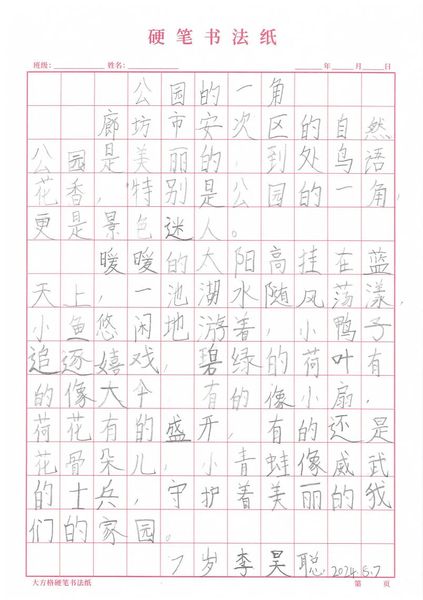 硬笔书法纸
班级：　姓名：　年　月　日
公园的一角
廊坊市安次区的自然
公园是美丽的，到处鸟语
花香，特别是公园的一角，
更是景色迷人。
暖暖的大阳高挂在蓝
天上，一池湖水随风荡漾，
小鱼悠闲地游着，小鸭子
追逐嬉戏，碧绿的荷叶有
的像大伞，有的像小扇，
荷花有的盛开，有的还是
花骨朵儿，小青蛙像威武
的士兵，守护着美丽的我
们的家园。
7岁李昊聪 2024.5.7
大方格硬笔书法纸　第　页